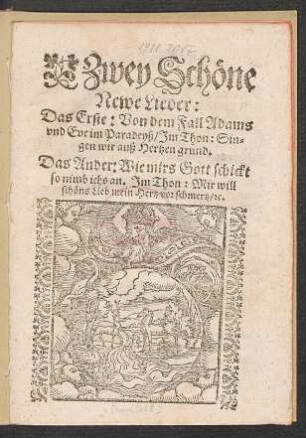 Zwey Schöne
Newe Lieder:
Das Erste: Von dem Fall Adams
vnd Eve im Paradeyß/ Im Thon: Sin-
gen wir auß Hertzen grund.
Das Ander: Wie mirs Gott schickt
so nimb ichs an. Im Thon: Mir will
schöns Lieb mein Hertz vor schmertz/ ꝛc.